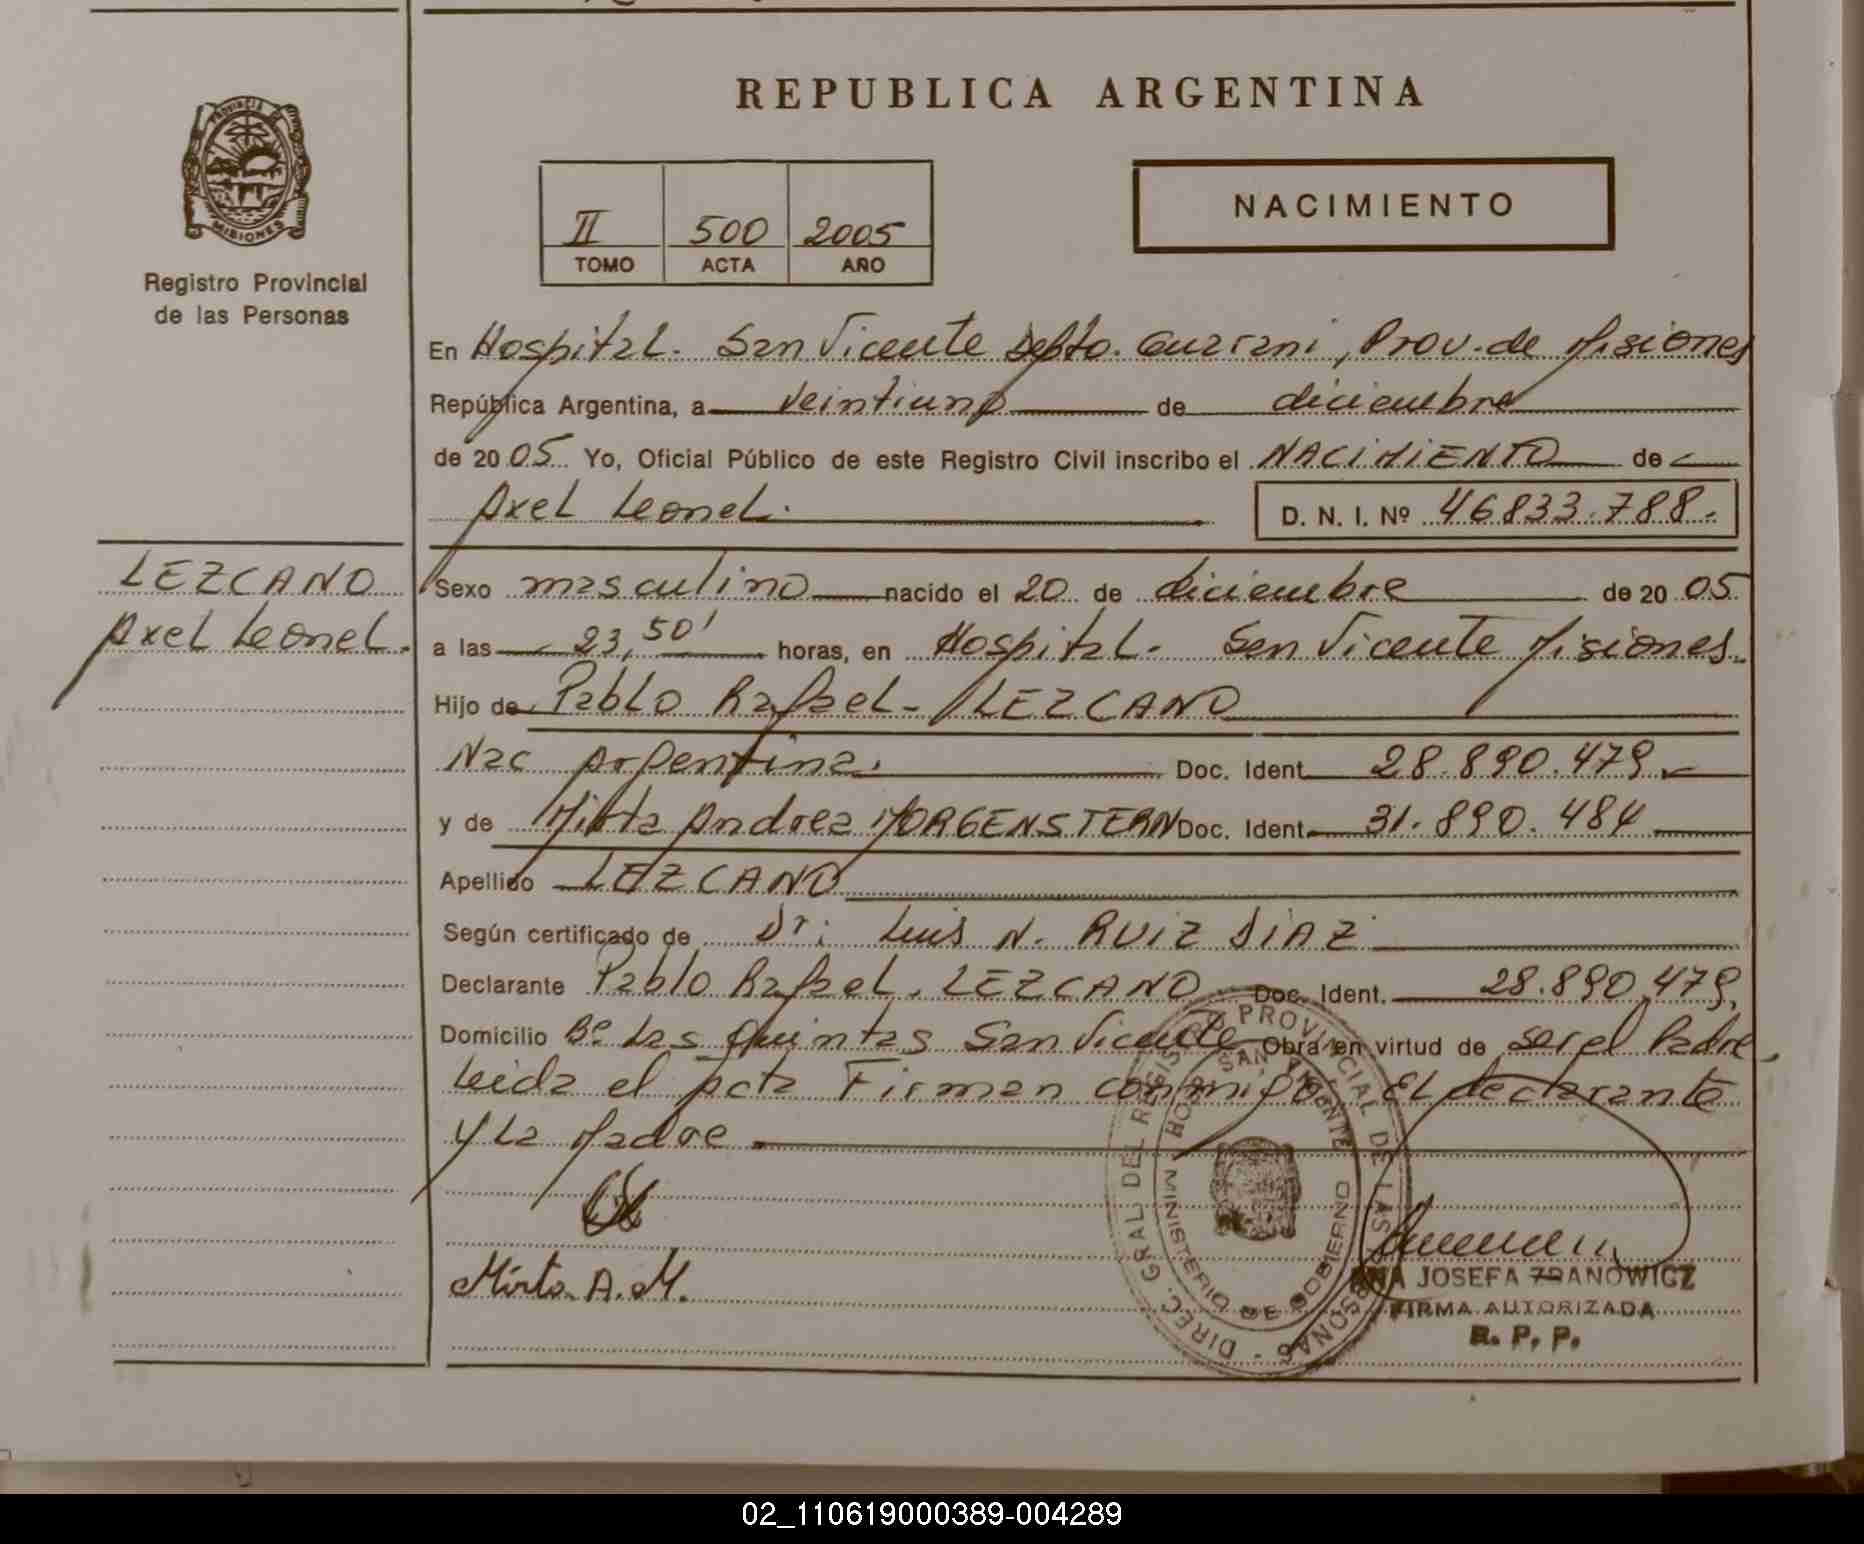 REPUBLICA ARGENTINA
PROVINCIA DE
MISIONES
Registro Provincial
de las Personas
II 500 2005
TOMO ACTA AÑO
NACIMIENTO
En Hospital. San Vicente Depto. Guarani, Prov. de Misiones
República Argentina, a veintiuno de diciembre
de 2005 Yo, Oficial Público de este Registro Civil inscribo el NACIMIENTO de
Axel Leonel. D. N. I. Nº 46833.788.-
LEZCANO
Axel Leonel.
Sexo masculino nacido el 20 de diciembre de 20 05
a las 23,50' horas, en Hospital. San Vicente Misiones.
Hijo de Pablo Rafael - LEZCANO
Nac Argentina. Doc. Ident. 28.890.479.-
y de Mirta Andrea MORGENSTERN Doc. Ident. 31.890.484
Apellido LEZCANO
Según certificado de Dr: Luis N. RUIZ DIAZ
Declarante Pablo Rafael. LEZCANO Doc. Ident. 28.890.479.
Domicilio Bº Las Quintas San Vicente Obra en virtud de ser el Padre.
Leida el Acta Firman conmigo El declarante
y La Madre
Mirta. A. M.
DIREC. GRAL DEL REGISTRO PROVINCIAL DE LAS PERSONAS
MINISTERIO DE GOBIERNO
HOSP. SAN VICENTE
ANA JOSEFA ZRANOWICZ
FIRMA AUTORIZADA
R. P. P.
02_110619000389-004289